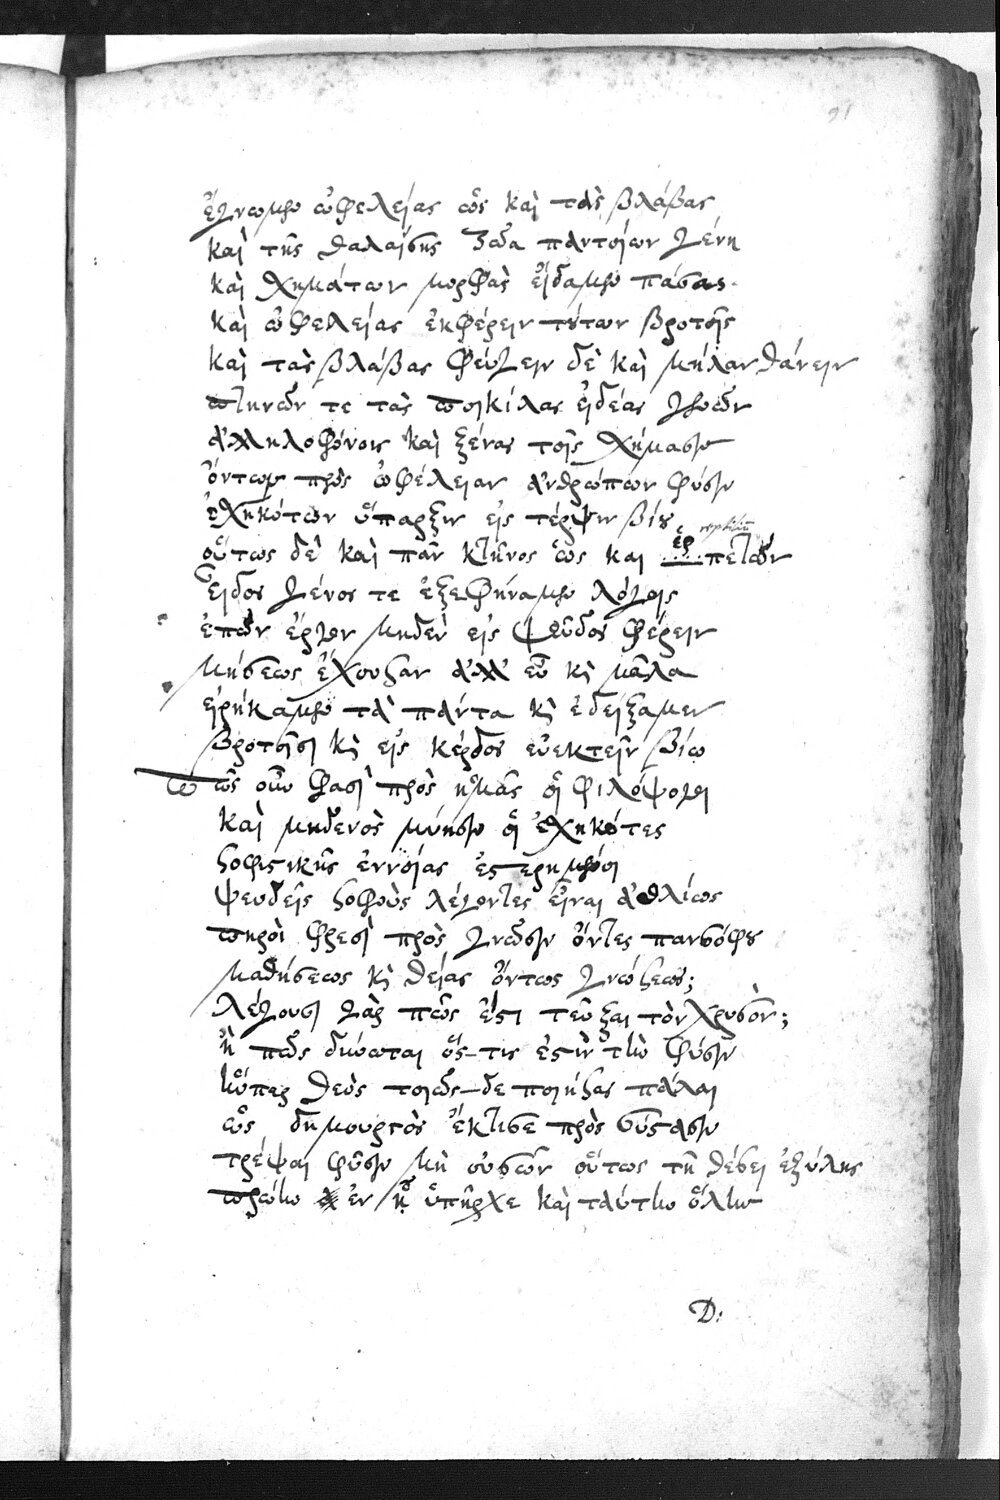 91
ἔγνωμεν ὠφελείας ὡς καὶ τὰς βλάβας
καὶ τῆς θαλάσσης ζῶα παντοίων γένη
καὶ σχημάτων μορφὰς εἴδαμεν πάσας.
καὶ ὠφελείας ἐκφέρειν τούτων βροτοῖς
καὶ τὰς βλάβας φεύγειν δὲ καὶ θάνειν
πτηνῶν τε τὰς ποικίλας εἰδέας
ἀλληλοφόνοις καὶ ξένας τοῖς σχήμασιν
ὄντων πρὸς ὠφέλειαν ἀνθρώπων φύσιν
ἐσχηκότων ὕπαρξιν εἰς τέρψιν βίου
οὕτως δὲ καὶ πᾶν κτῆνος ὡς καὶ ἑρπετῶν
εἶδος γένος τε ἐξεφήναμεν λόγοις
ἐπῶν ἔργον μηδὲν εἰς ψεῦδος φέρειν
μήσεως ἔχουσαν ἀλλ' εὖ κὶ μάλα
εἰρήκαμεν τὰ πάντα κὶ ἐδείξαμεν
βροτοῖσι κὶ εἰς κέρδος εὐεκτεῖν βίω
πῶς οὖν φασὶ πρὸς ἡμᾶς οἱ φιλόψογοι
καὶ μηδενὸς μύησιν οἱ ἐσχηκότες
σοφιστικῆς ἐννοίας ἐστερημένοι
ψευδεῖς σοφοὺς λέγοντες εἶναι ἀθλίως
πηροὶ φρεσὶ πρὸς γνῶσιν ὄντες πανσόφου
μαθήσεως κὶ θείας ὄντως γνώσεως;
λέγουσι γὰρ πῶς ἔστι τεῦξαι τὸν χρυσὸν;
ἢ πῶς δύναται ὅς-τις ἐστὶν τὴν φύσιν
ἥνπερ θεὸς τοιῶς-δε ποιήσας πάλαι
ὡς δημουργὸς ἔκτισε πρὸς σύστασιν
τρέψαι φύσιν μὴ οὐσῶν οὕτως τῇ θέσει ἐξύλης
πρώτην ἐν ᾗ ὑπῆρχε καὶ ταύτην ὅλην
D: